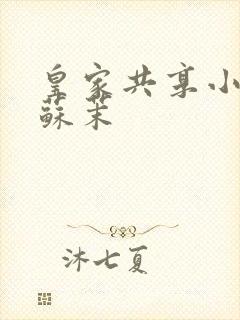 皇家共享小
蘇茉
沐七夏